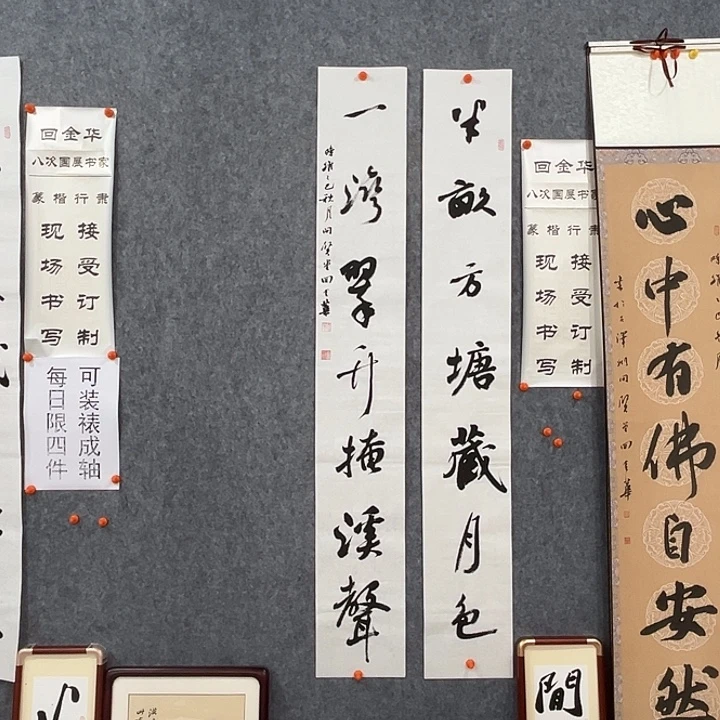 回金华
八次国展书家
篆楷行
接受订制
现场书写
可装裱成轴
每日限四件
半畝方塘藏月色
一灣翠竹掩溪聲
乙巳秋月
回金華
回金华
八次国展书家
篆楷行
接受订制
现场书写
心中有佛自安然
回金華
間